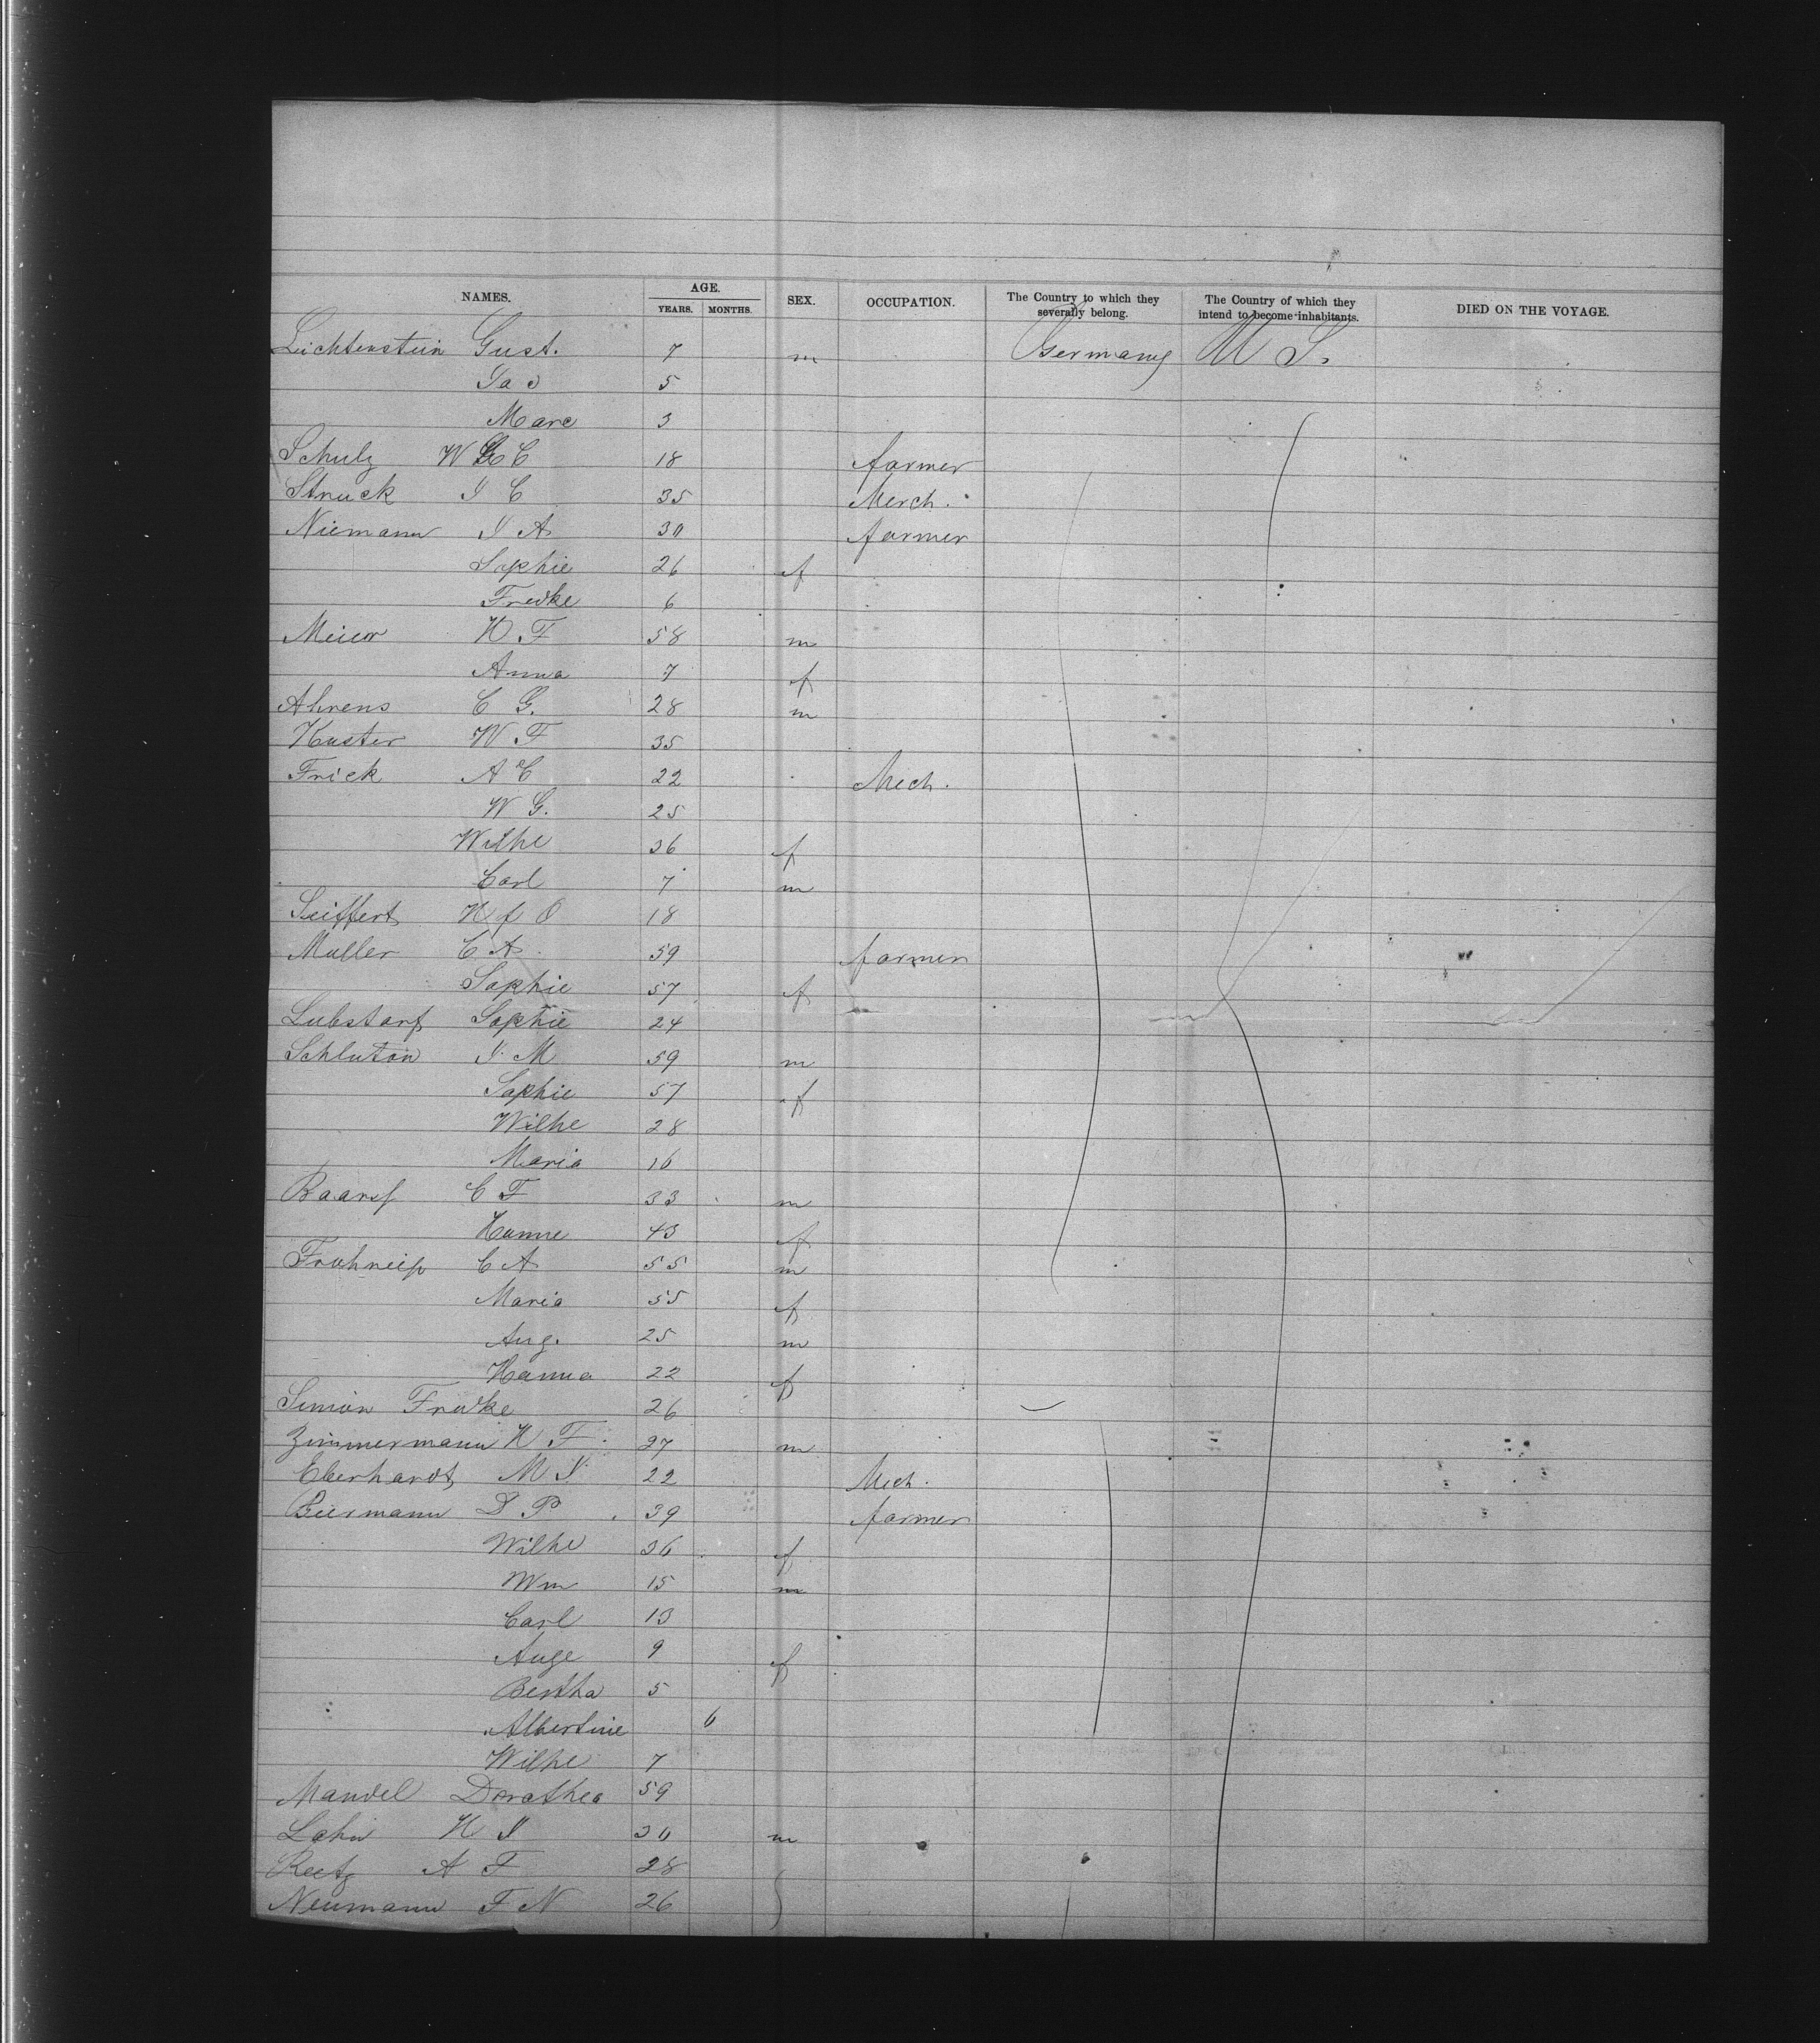 NAMES. AGE. YEARS. MONTHS. SEX. OCCUPATION. The Country to which they severally belong. The Country of which they intend to become inhabitants. DIED ON THE VOYAGE.
Lichtenstein Gust. 7 m Germany U S.
5
Marc 3
Schulz W C 18 farmer
Struck J C 35 Merch.
Niemann J A 30 farmer
Sophie 26 f
Fredke 6
Meier H F 58 m
Anna 7 f
Ahrens C G. 28 m
Kuster W F 35
Frick A C 22 Mech.
W G. 25
Wilhe 36 f
Carl 7 m
Seiffert H f O 18
Muller C A 59 farmer
Sophie 57 f
Lubstorf Sophie 24
Schluton J. M 59 m
Sophie 57 f
Wilhe 28
Maria 16
Baarsf C F 33 m
Hanne 43 f
C A 55 m
Maria 55 f
Aug. 25 m
Hanna 22 f
Simon Fredke 26
Zimmermann H F. 27 m
Eberhardt M J 22 Mech.
Biermann D P 39 farmer
Wilhe 36 f
Wm 15 m
Carl 13
Auge 9 f
Bertha 5
Albertine 6
Wilhe 7
Mandel Dorothea 59
Lahn H J 30 m
Reetz A F 28
Neumann F N 26